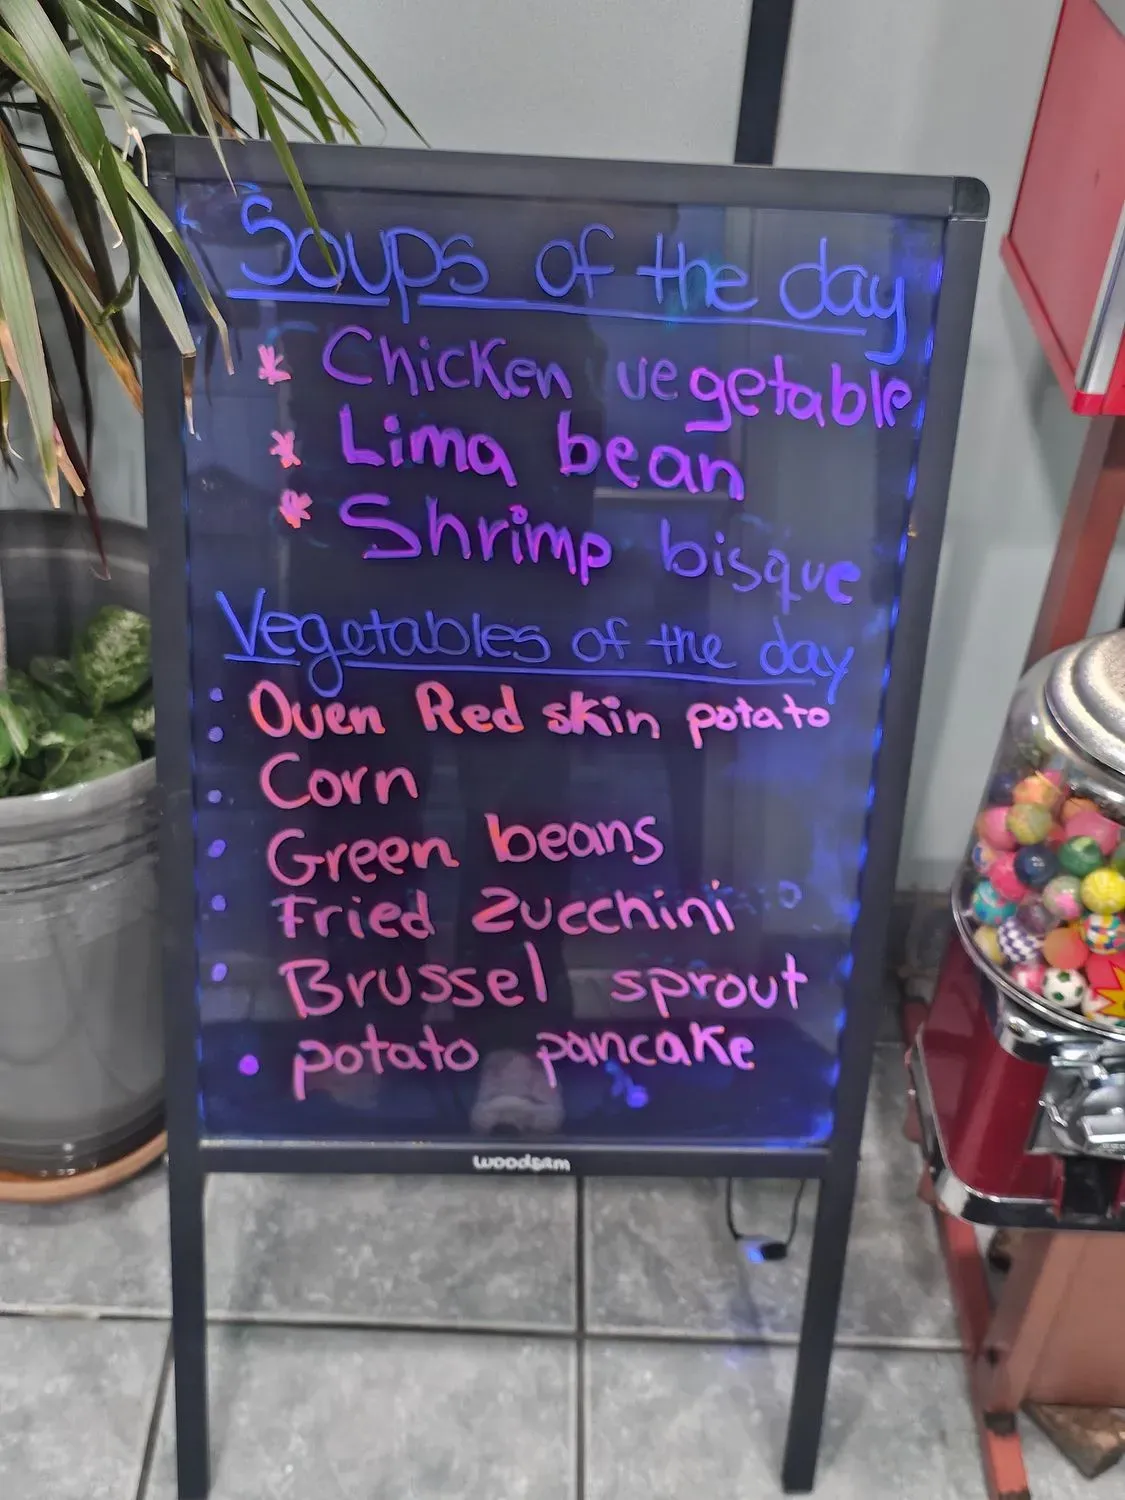 Soups of the day
* Chicken vegetable
* Lima bean
* Shrimp bisque
Vegetables of the day
: Oven Red skin potato
• Corn
• Green beans
• Fried Zucchini
• Brussel sprout
• potato pancake
woodsam